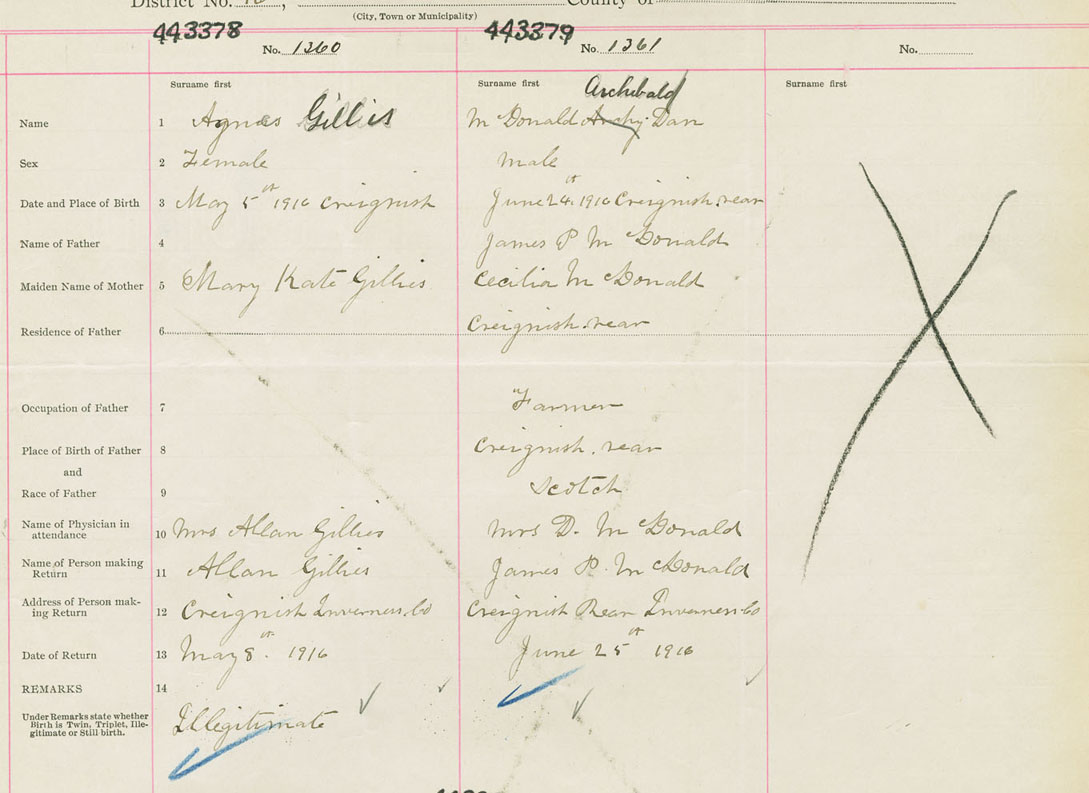 District No. County of
(City, Town or Municipality)
443378 443379
No. 1260 No. 1261 No.
Surname first Surname first Surname first
Archibald
Name 1 Agnes Gillis McDonald Archy Dan
Sex 2 Female male
Date and Place of Birth 3 May 5th 1916 Creignish June 24th 1916 Creignish rear
Name of Father 4 James P McDonald
Maiden Name of Mother 5 Mary Kate Gillies Cecilia McDonald
Residence of Father 6 Creignish rear
Occupation of Father 7 Farmer
Place of Birth of Father 8 Creignish rear
and
Race of Father 9 Scotch
Name of Physician in
attendance 10 Mrs Allan Gillies Mrs D. McDonald
Name of Person making
Return 11 Allan Gillies James P. McDonald
Address of Person mak-
ing Return 12 Creignish Inverness Co Creignish Rear Inverness Co
Date of Return 13 May 8th 1916 June 25th 1916
REMARKS 14
Under Remarks state whether
Birth is Twin, Triplet, Ille-
gitimate or Still birth. Illegitimate